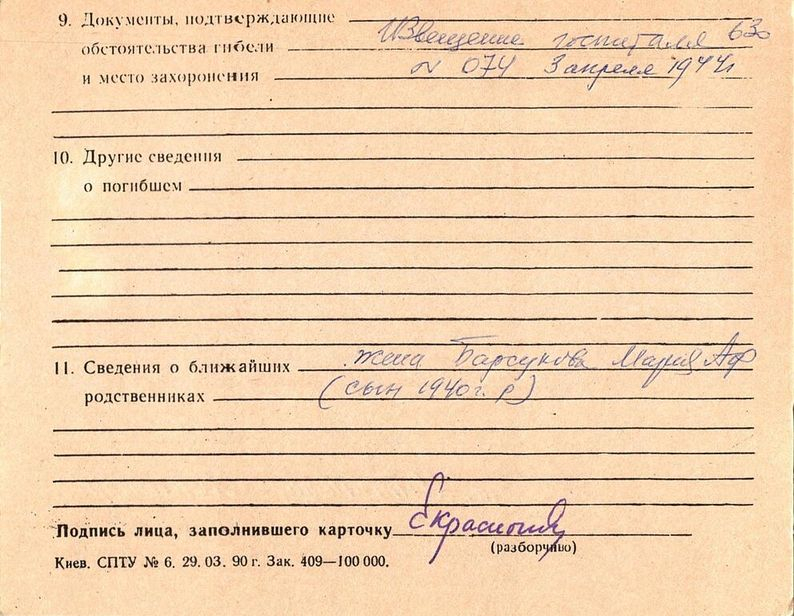 9. Документы, подтверждающие Извещение госпиталя 630
обстоятельства гибели
и место захоронения № 074 3 апреля 1944г
10. Другие сведения
о погибшем
11. Сведения о ближайших жена Барсукова Мария Аф
родственниках (сын 1940 г. р)
Подпись лица, заполнившего карточку
(разборчиво)
Киев. СПТУ № 6. 29. 03. 90 г. Зак. 409—100 000.